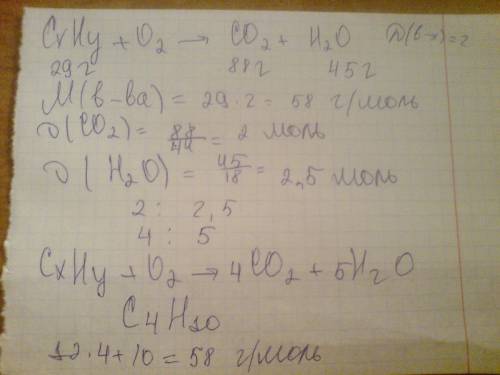 CxHy + O2 → CO2 + H2O D(в-х)=?
29г 88г 45г
M(в-ва) = 29·2 = 58 г/моль
ν(CO2) = 88/44 = 2 моль
ν(H2O) = 45/18 = 2,5 моль
2 : 2,5
4 : 5
CxHy + O2 → 4CO2 + 5H2O
C4H10
12·4+10 = 58 г/моль